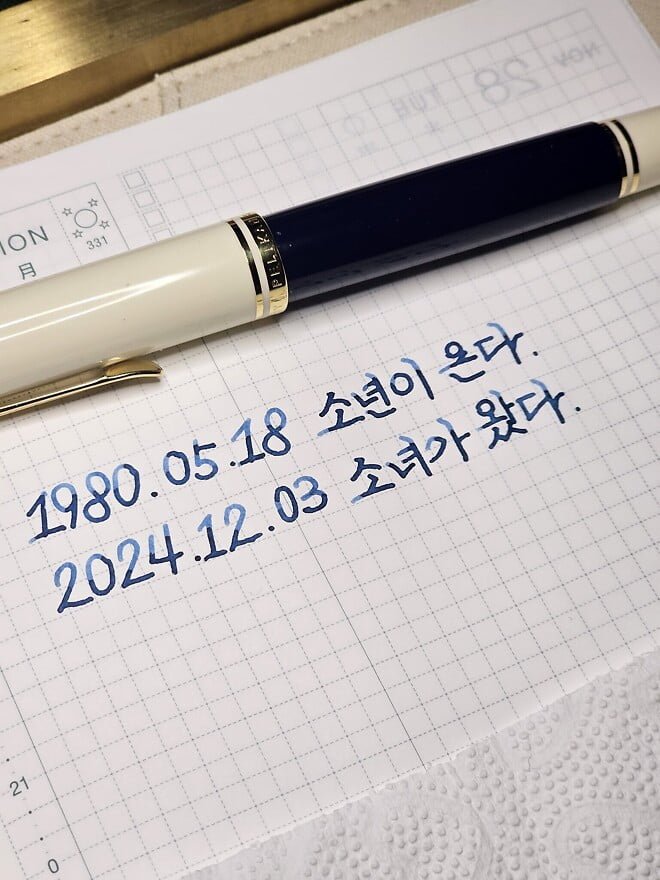 月
331
PELIKAN
1980.05.18 소년이 온다.
2024.12.03 소녀가 왔다.
21
0